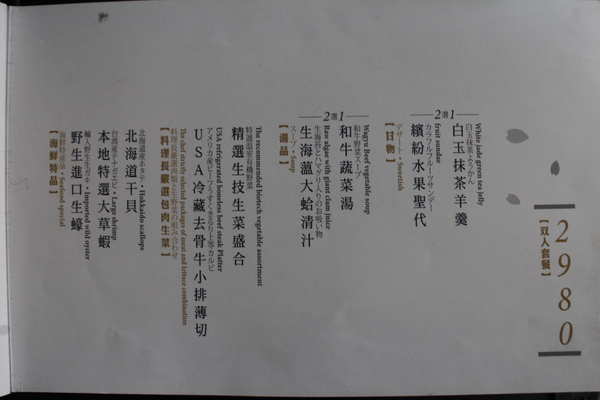 2980
【双人套餐】
【海鮮特品】
海鮮特産品・Seafood special
野生進口生蠔
輸入野生生ガキ・Imported wild oyster
本地特選大草蝦
台湾産テナガエビ・Large shrimp
北海道干貝
北海道産ホタテ・Hokkaido scallops
【料理長嚴選包肉生菜】
料理長厳選肉物と生野菜の組み合わせ
The chef strictly selected packages of meat and lettuce combination
USA冷藏去骨牛小排薄切
USA refrigerated boneless beef steak Platter
精選生技生菜盛合
特選温室有機野菜
The recommended biotech vegetable assortment
【湯品】
スープ・Soup
2選1
生海薀大蛤清汁
生海苔とハマグリ入りのお吸い物
Raw algae with giant clam juice
和牛蔬菜湯
和牛野菜スープ
Wagyu Beef vegetable soup
【甘物】
デザート・Sweetish
2選1
繽紛水果聖代
カラフルフルーツサンデー
fruit sundae
白玉抹茶羊羹
白玉抹茶ようかん
White jade green tea jelly